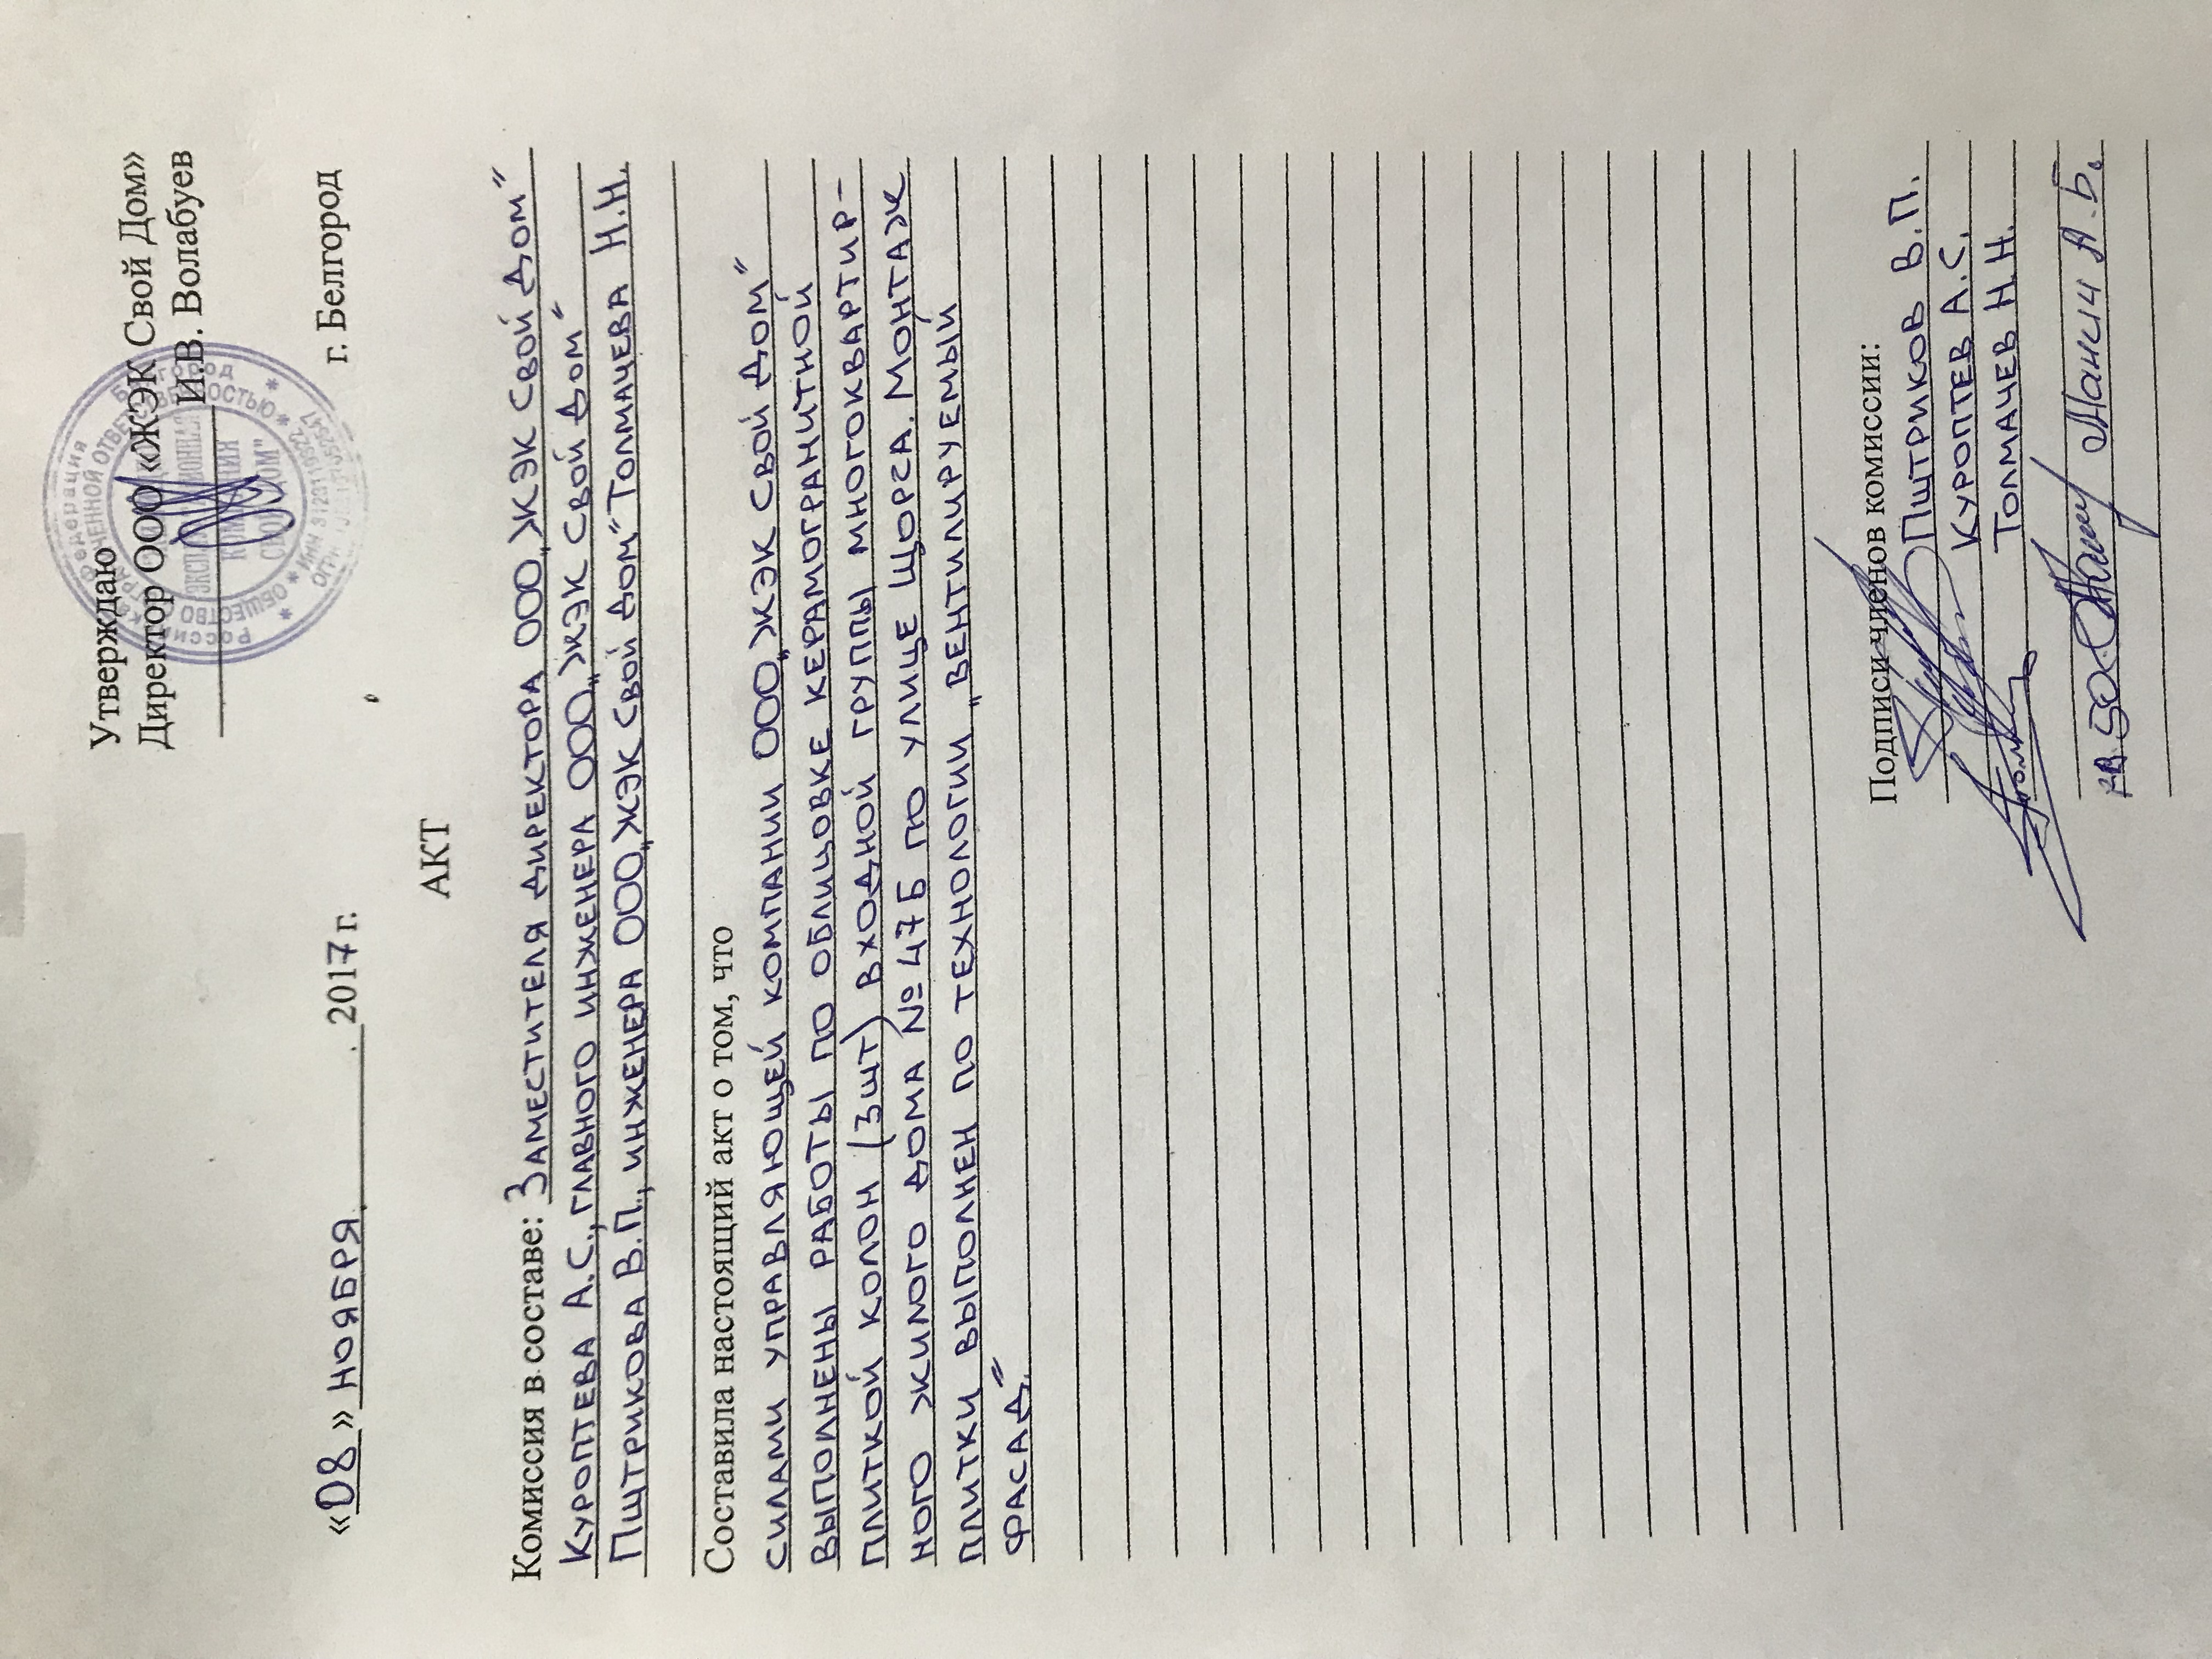 Утверждаю
Директор ООО «ЖЭК Свой Дом»
И.В. Волабуев
«08» НОЯБРЯ 2017 г. г. Белгород
АКТ
Комиссия в составе: ЗАМЕСТИТЕЛЯ ДИРЕКТОРА ООО „ЖЭК СВОЙ ДОМ“
КУРОПТЕВА А.С., ГЛАВНОГО ИНЖЕНЕРА ООО „ЖЭК СВОЙ ДОМ“
ПШТРИКОВА В.П., ИНЖЕНЕРА ООО „ЖЭК СВОЙ ДОМ“ ТОЛМАЧЕВА Н.Н.
Составила настоящий акт о том, что
СИЛАМИ УПРАВЛЯЮЩЕЙ КОМПАНИИ ООО „ЖЭК СВОЙ ДОМ“
ВЫПОЛНЕНЫ РАБОТЫ ПО ОБЛИЦОВКЕ КЕРАМОГРАНИТНОЙ
ПЛИТКОЙ КОЛОН (3ШТ) ВХОДНОЙ ГРУППЫ МНОГОКВАРТИР-
НОГО ЖИЛОГО ДОМА № 47Б ПО УЛИЦЕ ЩОРСА. МОНТАЖ
ПЛИТКИ ВЫПОЛНЕН ПО ТЕХНОЛОГИИ „ВЕНТИЛИРУЕМЫЙ
ФАСАД“.
Подписи членов комиссии:
ПШТРИКОВ В.П.
КУРОПТЕВ А.С.
ТОЛМАЧЕВ Н.Н.
кв. 50 А.Б.
Российская Федерация Белгород
ОБЩЕСТВО С ОГРАНИЧЕННОЙ ОТВЕТСТВЕННОСТЬЮ
КОМПАНИЯ